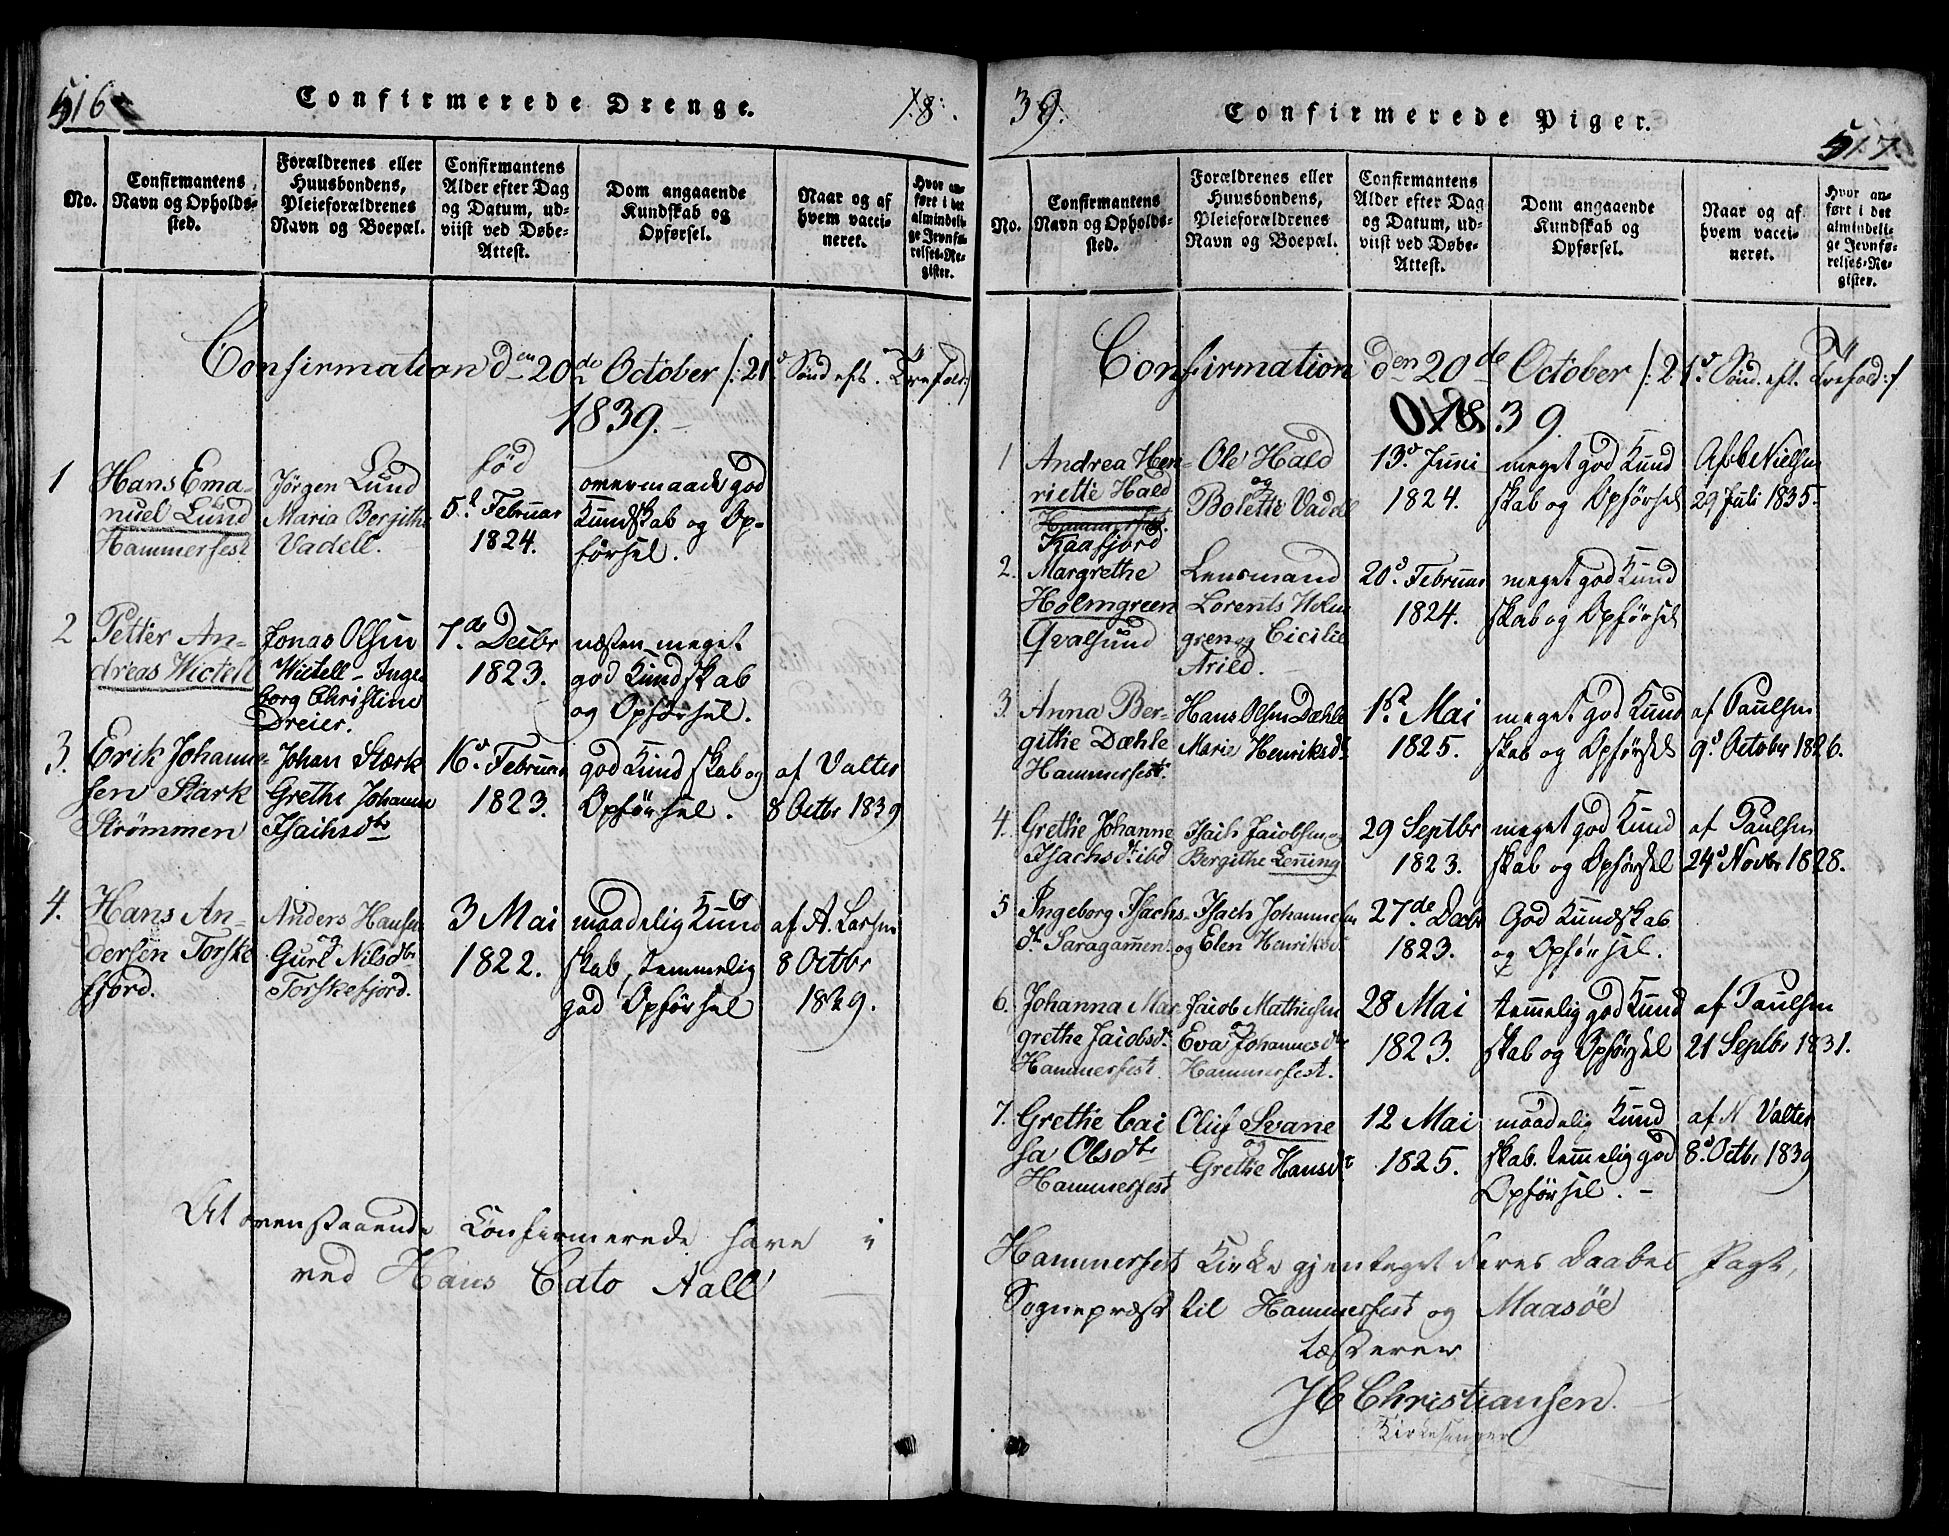 516
Confirmerede Drenge.
18
No.
Confirmantens Navn og Opholds-sted.
Forældrenes eller Huusbondens, Pleieforældrenes Navn og Boepæl.
Confirmantens Alder efter Dag og Datum, ud-viist ved Døbe-Attest.
Dom angaaende Kundskab og Opførsel.
Naar og af hvem vacci-neret.
Hvor an-ført i det almindeli-ge Jevnfø-relses-Re-gister.
Confirmation den 20de October /: 21d Sønd eft. Trefold:/
1839.
1
Hans Ema-
nuel Lund
Hammerfest
Jörgen Lund
Maria Bergithe
Vadell.
fød
5t Februar
1824.
overmaade god
Kundskab og Op-
førsel.
2
Petter An-
dreas Wictell
Jonas Olsen
Wictell - Inge-
borg Christine
Dreier.
7de Decbr
1823.
næsten meget
god Kundskab
og Opførsel.
3.
Erik Johanne-
sen Stark
Strömmen
Johan Stærk
Grethe Johanne
Isachsdtr
16d Februar
1823.
god Kundskab og
Opførsel.
af Valter
8 Octbr 1839
4.
Hans An-
dersen Torske
fjord.
Anders Hansen
Guri Nilsdtr
Torskefjord.
3 Mai
1822.
maadelig Kund
skab, temmelig
god Opførsel
af A. Larsen
8 Octbr
1829.
Det ovenstaaende Confirmerede have i
ved Hans Cato Aall
39.
Confirmerede Piger.
517.
No.
Confirmantens Navn og Opholds-sted.
Forældrenes eller Huusbondens, Pleieforældrenes Navn og Boepæl.
Confirmantens Alder efter Dag og Datum, ud-viist ved Døbe-Attest.
Dom angaaende Kundskab og Opførsel.
Naar og af hvem vacci-neret.
Hvor an-ført i det almindeli-ge Jevnfø-relses-Re-gister.
Confirmation den 20de October /: 21d Sønd. eft. Trefold:/
1839.
1
Andrea Hen-
riette Hald
Hammerfest.
Kaafjord
Ole Hald
og
Bolette Vadel
13d Juni
1824.
meget god Kund
skab og Opførsel
Af C Nielsen
29 Juli 1835.
2.
Margrethe
Holmgreen
Qvalsund
Lensmand
Lorents Holm
gren og Cicilie
Arild.
20d Februar
1824.
meget god Kund
skab og Opførsel
3.
Anna Ber-
githe Dæhle
Hammerfest.
Hans Olsen Dæhle
Marie Henriksdt
1st Mai
1825.
meget god Kund
skab og Opførsel
af Paulsen
9d October 1826.
4.
Grethe Johanne
Isachsdt. ibd
Isach Jacobsen og
Bergithe Lenning
29 Septbr
1823.
meget god Kund
skab og Opførsel
af Paulsen
24d Novbr 1828.
5
Ingeborg Isachs-
dt. Saragammen.
Isach Johannesen
og Elen Henriksdt
27de Decbr
1823.
God Kundskab
og Opførsel.
6.
Johanna Mar-
grethe Jacobsdt.
Hammerfest.
Jacob Mathiesen
Eva Johannesdtr
Hammerfest.
28 Mai
1823.
temmelig god Kund
skab og Opførsel
af Paulsen
21 Septbr 1831.
7.
Grethe Cai
sa Olsdtr
Hammerfest
Oluf Svane
og
Grethe Hansdt
12 Mai
1825.
maadelig Kund
skab. temmelig god
Opførsel. -
af N Valter
8d Octbr 1839
Hammerfest Kirke gjentaget deres Daabes Pagt,
Sognepræst til Hammerfest og Maasöe
testerer
JC Christiansen.
Kirkesanger